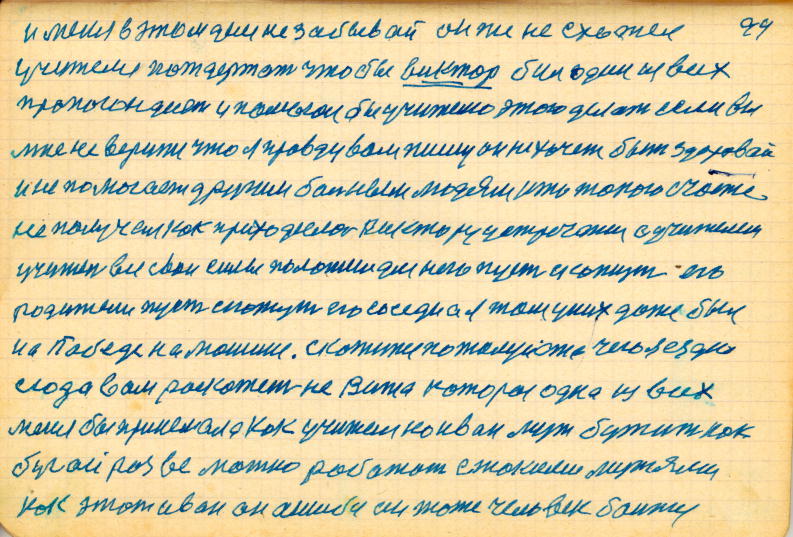 и меня в этом деле не забывай он же не схожел 99
учителя поддержат чтобы Виктор был один из всех
пропогандист и помогал бы учителю этого делат если вы
мне не верите что я правду вам пишу он не хочет быть здоровай
и не помогает другим больным людям и то такого счастте
не получем как приходилос Виктору устречатся с учителем
учител все свои силы положил для него пуст скажут его
родители пуст скажут его соседи а я там у них даже был
на Победе на машине. скажите пожалуйста чего я ездил
сюда вам раскажет не Вита которая одна из всех
меня бы принемала как учителя но иван муж бушит как
бугай разве можно работат с такими мужями
как этот иван он ашибся он тоже человек